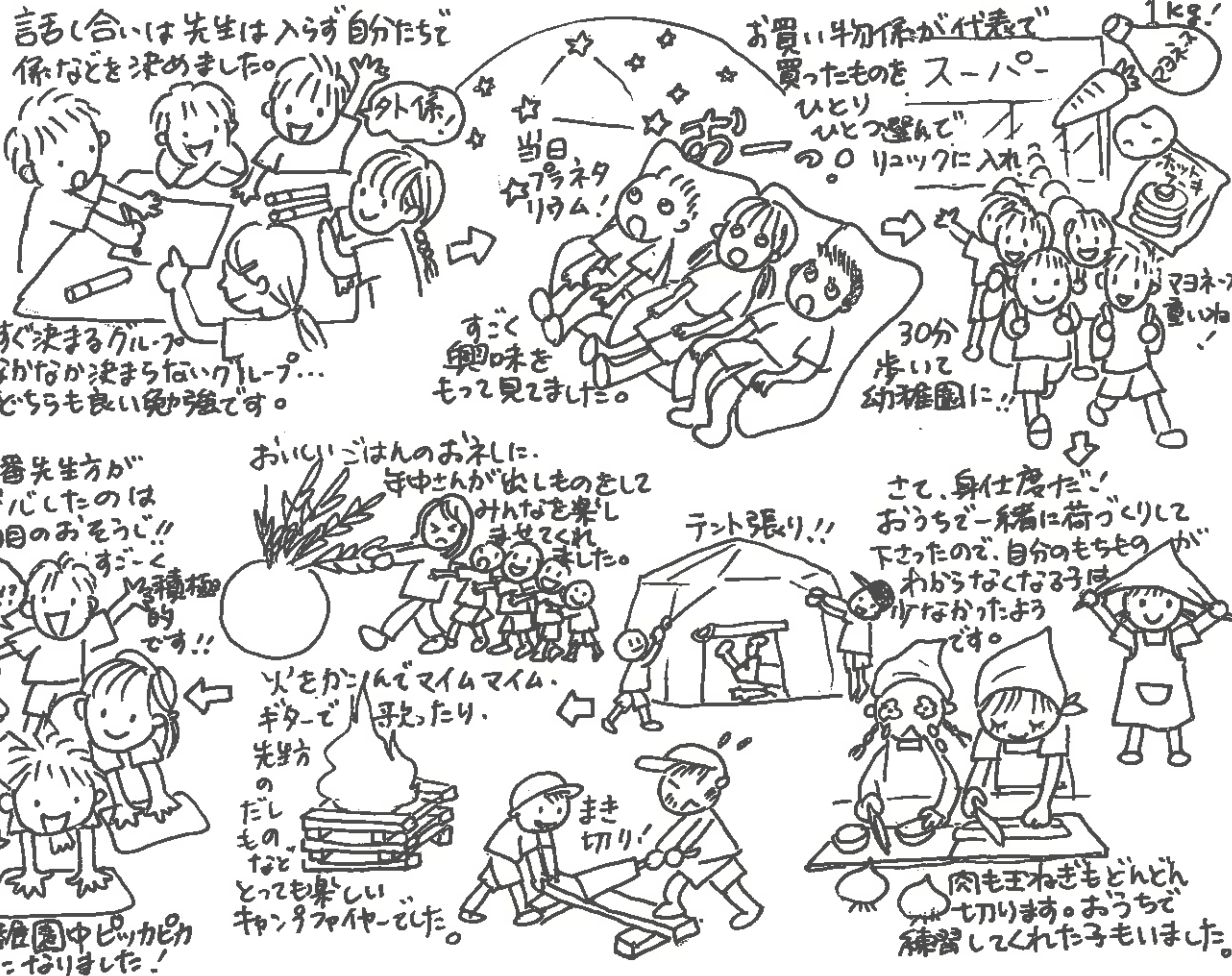 話し合いは先生は入らず自分たちで
係などを決めました。
外係!
すぐ決まるグループ
なかなか決まらないグループ…
どちらも良い勉強です。
当日
プラネタ
リウム!
あー
すごく
興味を
もって見てました。
お買い物係が代表で
買ったものを
ひとり
ひとつ選んで
の。リュックに入れ
スーパー
1kg!
マヨネーズ
ホット
ケーキ
マヨネーズ
重いね
!
30分
歩いて
幼稚園に!!
さて、身仕度だ!
おうちで一緒に荷づくりして
下さったので、自分のもちものが
わからなくなる子は
少なかったよう
です。
肉も玉ねぎもどんどん
切ります。おうちで
練習してくれた子もいました。
テント張り!!
まき
切り!
おいしいごはんのお礼に、
年中さんが出しものをして
みんなを楽し
ませてくれ
ました。
火をかこんでマイムマイム、
ギターで歌ったり、
先生方
の
だし
もの
など
とっても楽しい
キャンプファイヤーでした。
番先生方が
したのは
目のおそうじ!!
すごーく
積極
的
です!!
稚園中ピッカピカ
になりました!